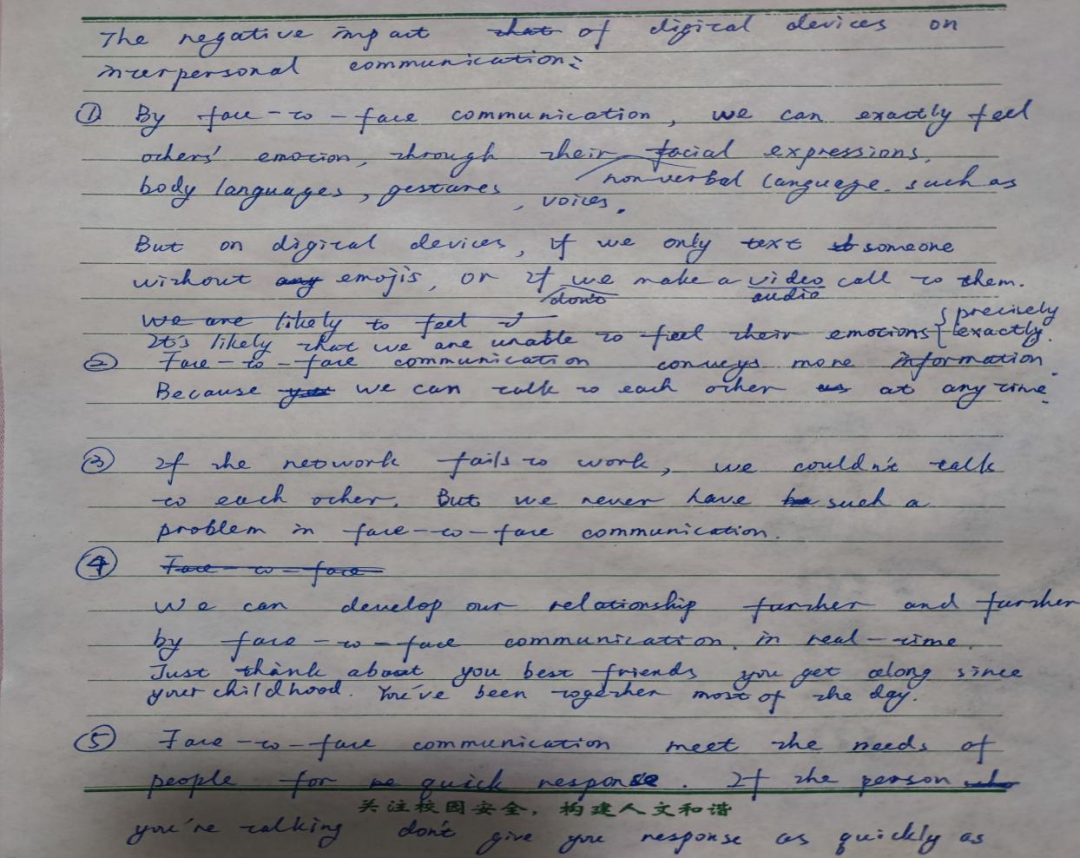 The negative impact that of digital devices on
interpersonal communication:
① By face-to-face communication, we can exactly feel
others' emotion, through their facial expressions,
body languages, gestures, nonverbal language. such as
, voices.
But on digital devices, if we only text to someone
without any emojis, or if we make a video call to them.
don't audio
We are likely to feel
It's likely that we are unable to feel their emotions { precisely
exactly.
② Face-to-face communication conveys more information.
Because you we can talk to each other as at any time.
③ If the network fails to work, we couldn't talk
to each other. But we never have such a
problem in face-to-face communication.
④ Face-to-face
We can develop our relationship further and further
by face-to-face communication. in real-time.
Just think about you best friends you get along since
your childhood. You've been together most of the day.
⑤ Face-to-face communication meet the needs of
people for quick response. If the person who
关注校园安全，构建人文和谐
you're talking don't give you response as quickly as